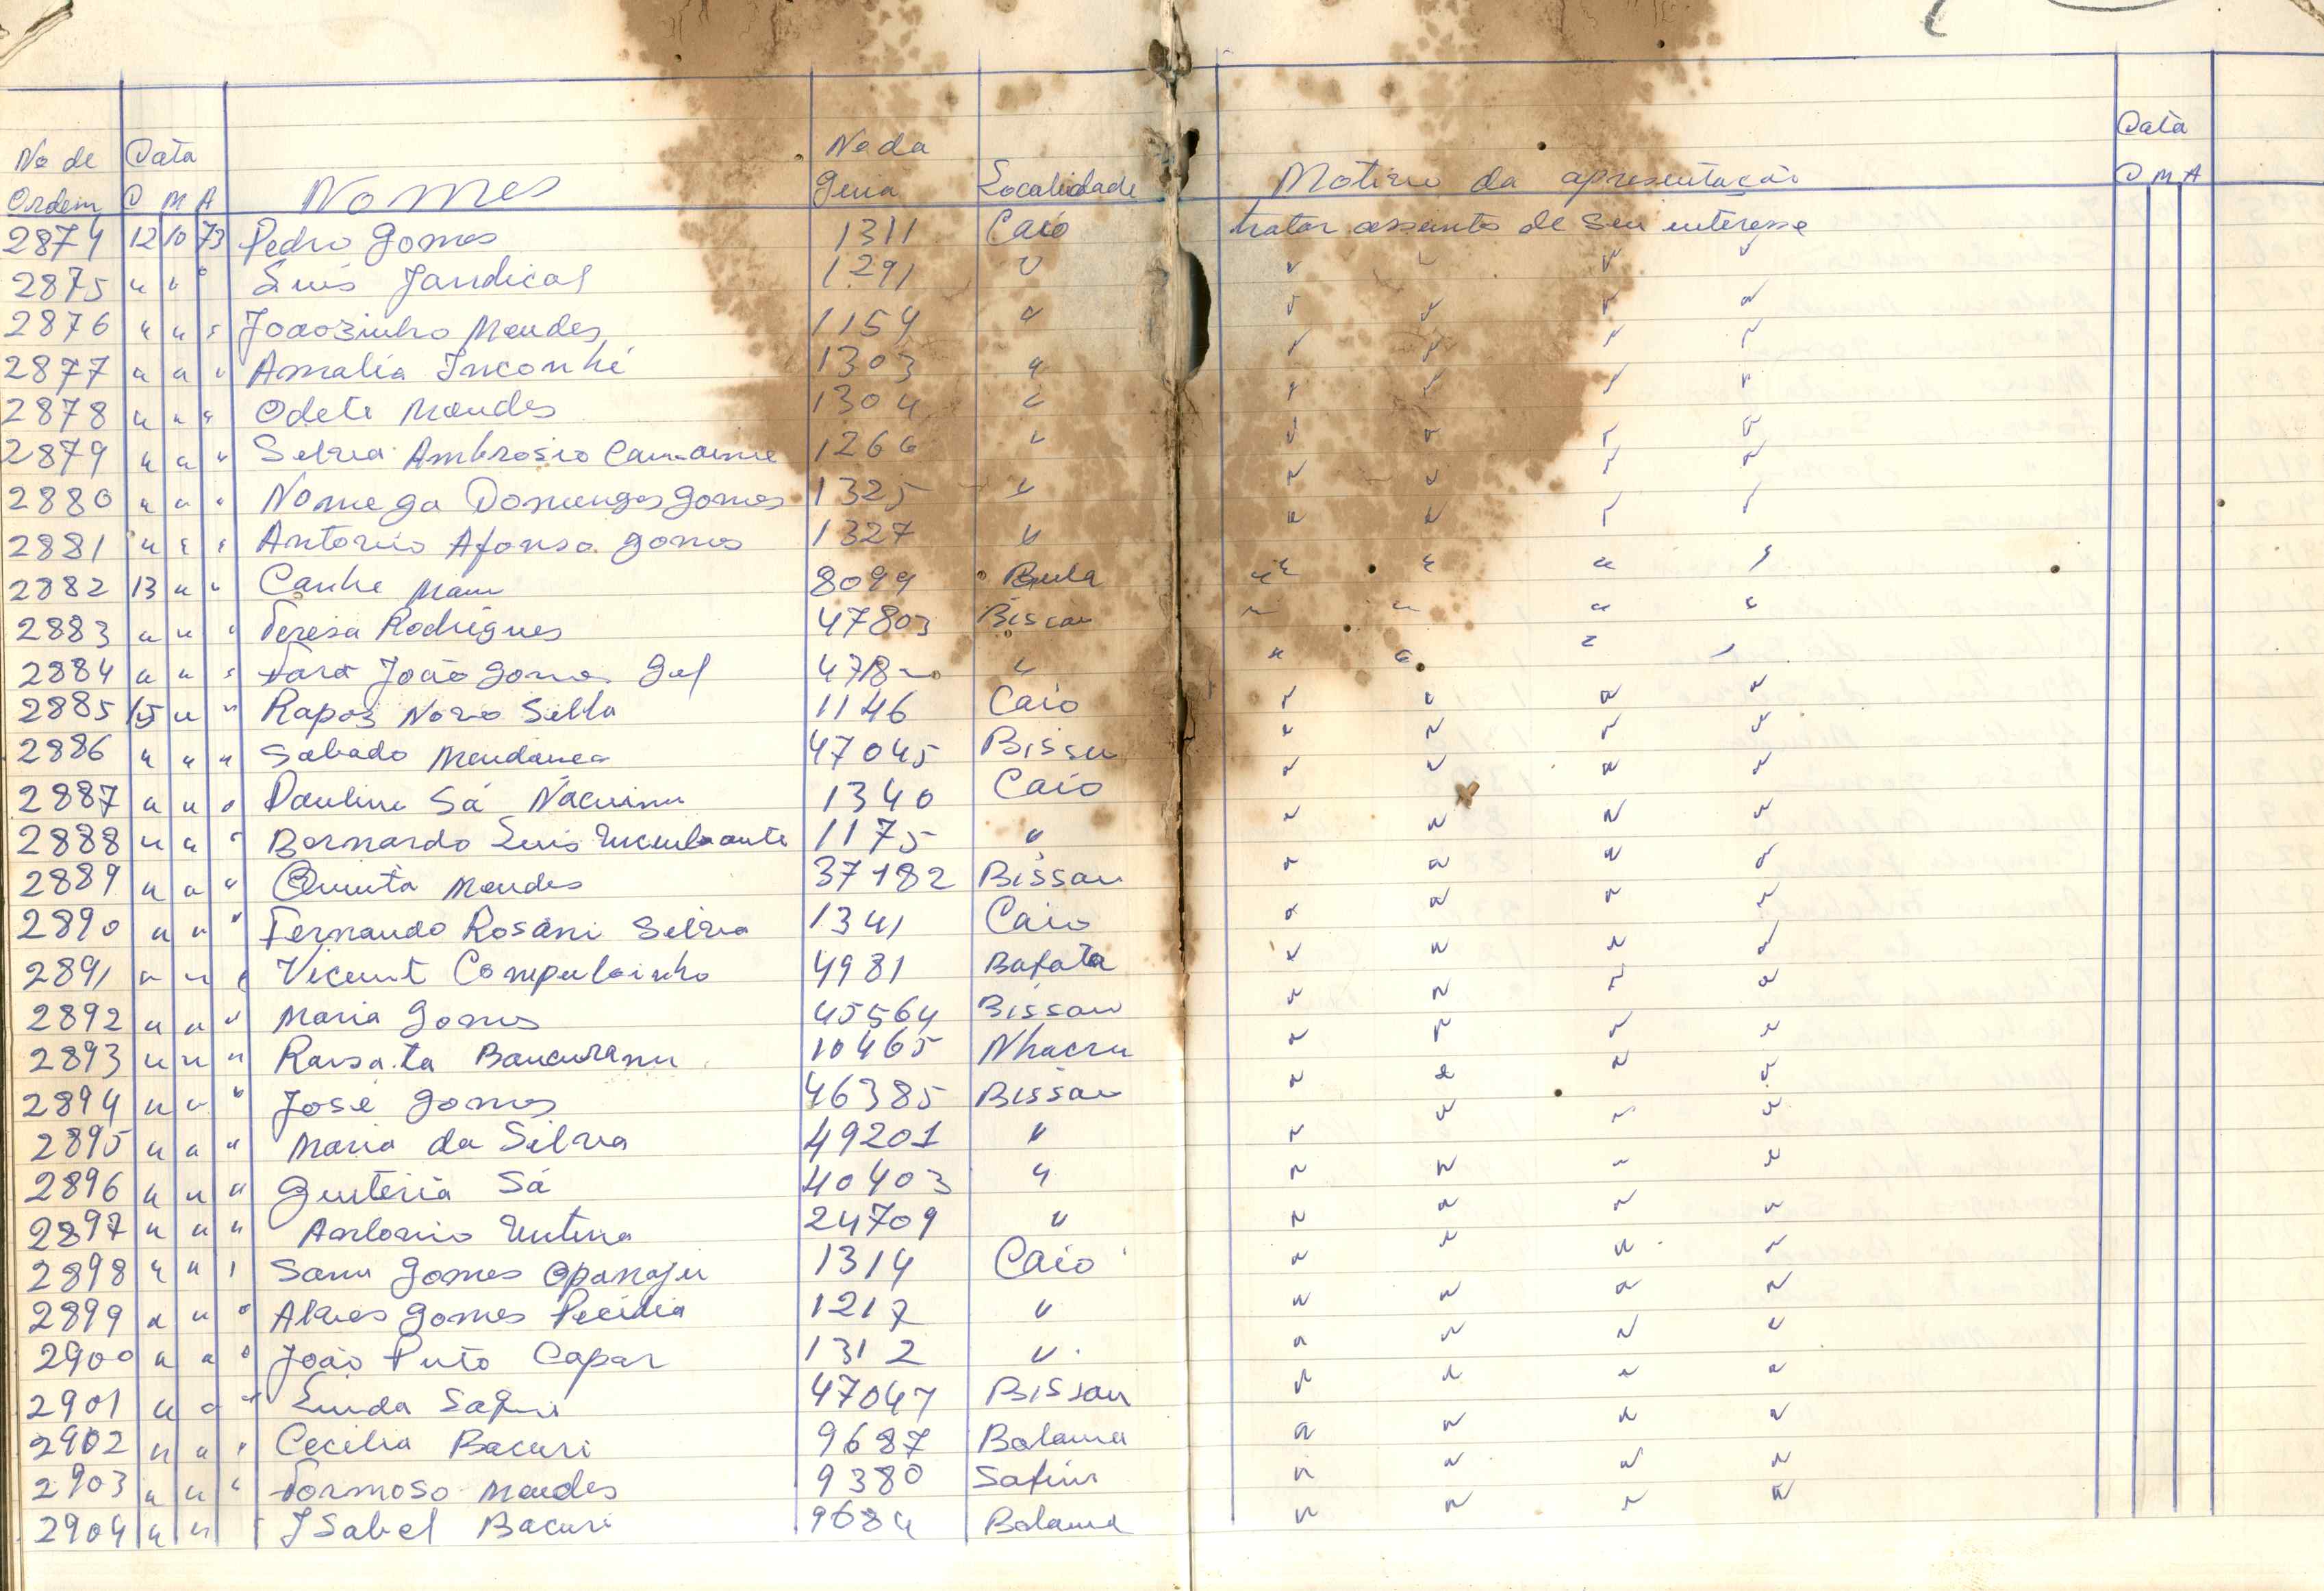 No de Data No da Data
Ordem D M A Nomes Guia Localidade Motivo da apresentação D M A
2874 12 10 73 Pedro Gomes 1311 Caió tratar assunto de seu interesse
2875 " " " Luis Jandical 1291 " " " " "
2876 " " " Joaozinho Mendes 1154 " " " " "
2877 " " " Amalia Inconhé 1303 " " " " "
2878 " " " Odete Mendes 1304 " " " " "
2879 " " " Selva Ambrosio 1266 " " " " "
2880 " " " Nomega Domengos Gomes 1325 " " " " "
2881 " " " Antonio Afonso Gomes 1327 " " " " "
2882 13 " " Canhe 8099 Bula " " " "
2883 " " " Teresa Rodrigues 47803 Bissau " " " "
2884 " " " João Gomes " " " " "
2885 15 " " Rapoz Novo Silla 1146 Caio " " " "
2886 " " " Sabado 47045 Bissu " " " "
2887 " " " Sá 1340 Caió " " " "
2888 " " " Bernardo Luis 1175 " " " " "
2889 " " " Quinta Mendes 37182 Bissau " " " "
2890 " " " Fernando Rosani Selva 1341 Caio " " " "
2891 " " " Vicent 4981 Bafata " " " "
2892 " " " Maria Gomes 45564 Bissau " " " "
2893 " " " 10465 Nhacra " " " "
2894 " " " José Gomes 46385 Bissau " " " "
2895 " " " Maria da Silva 49201 " " " " "
2896 " " " Guiteria Sá 40403 " " " " "
2897 " " " Antonio 24709 " " " " "
2898 " " " Gomes 1314 Caió " " " "
2899 " " " Alves Gomes 1217 " " " " "
2900 " " " João Puto Capar 1312 " " " " "
2901 " " " Linda 47047 Bissau " " " "
2902 " " " Cecilia Bacuri 9687 Bolama " " " "
2903 " " " Formoso Mendes 9380 Safim " " " "
2904 " " " Isabel Bacuri 9684 Bolama " " " "